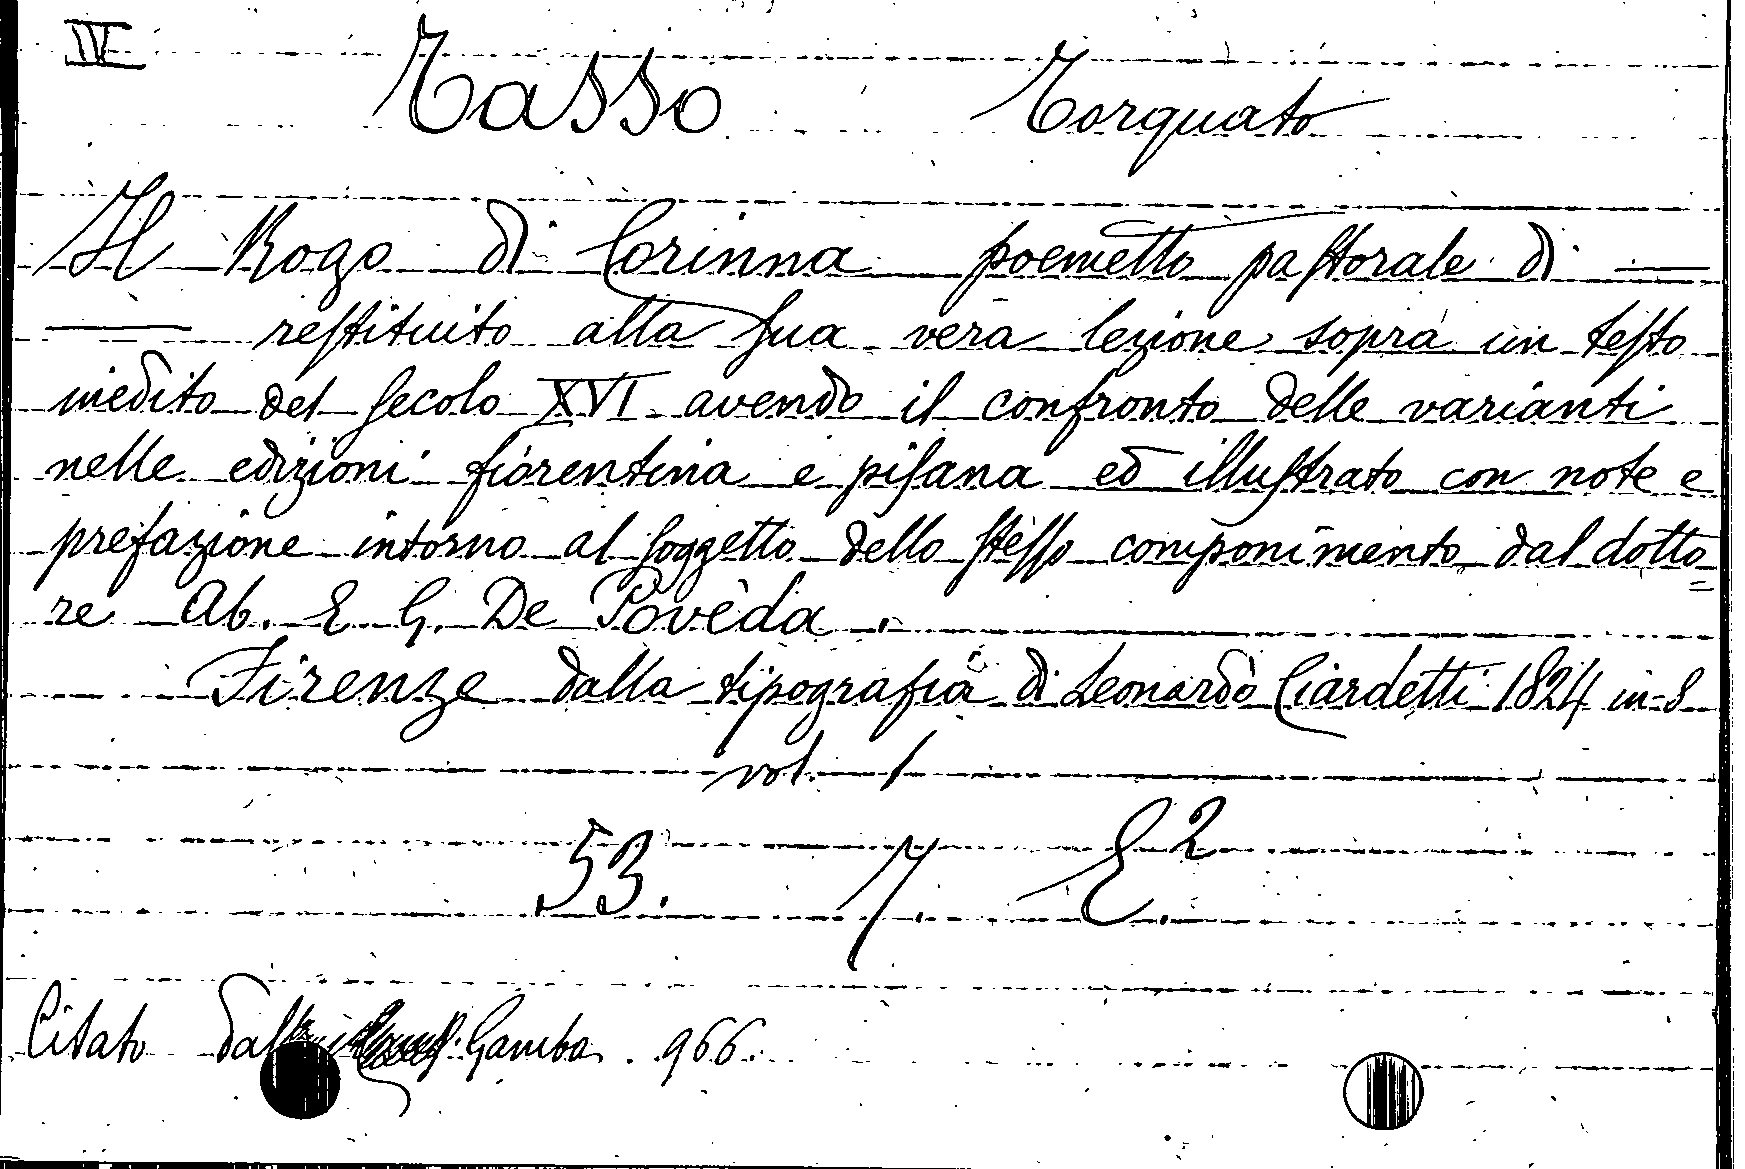 IV
Tasso Torquato
Il Rogo di Corinna poemetto pastorale di —
— restituito alla sua vera lezione sopra un testo
inedito del secolo XVI avendo il confronto delle varianti
nelle edizioni fiorentina e pisana ed illustrato con note e
prefazione intorno al soggetto dello stesso componimento dal dotto=
re Ab. E. G. De Povèda.
Firenze dalla tipografia di Leonardo Ciardetti 1824 in-8
vol. 1
53. 7. E.2
Citato dal Gamba. 966.